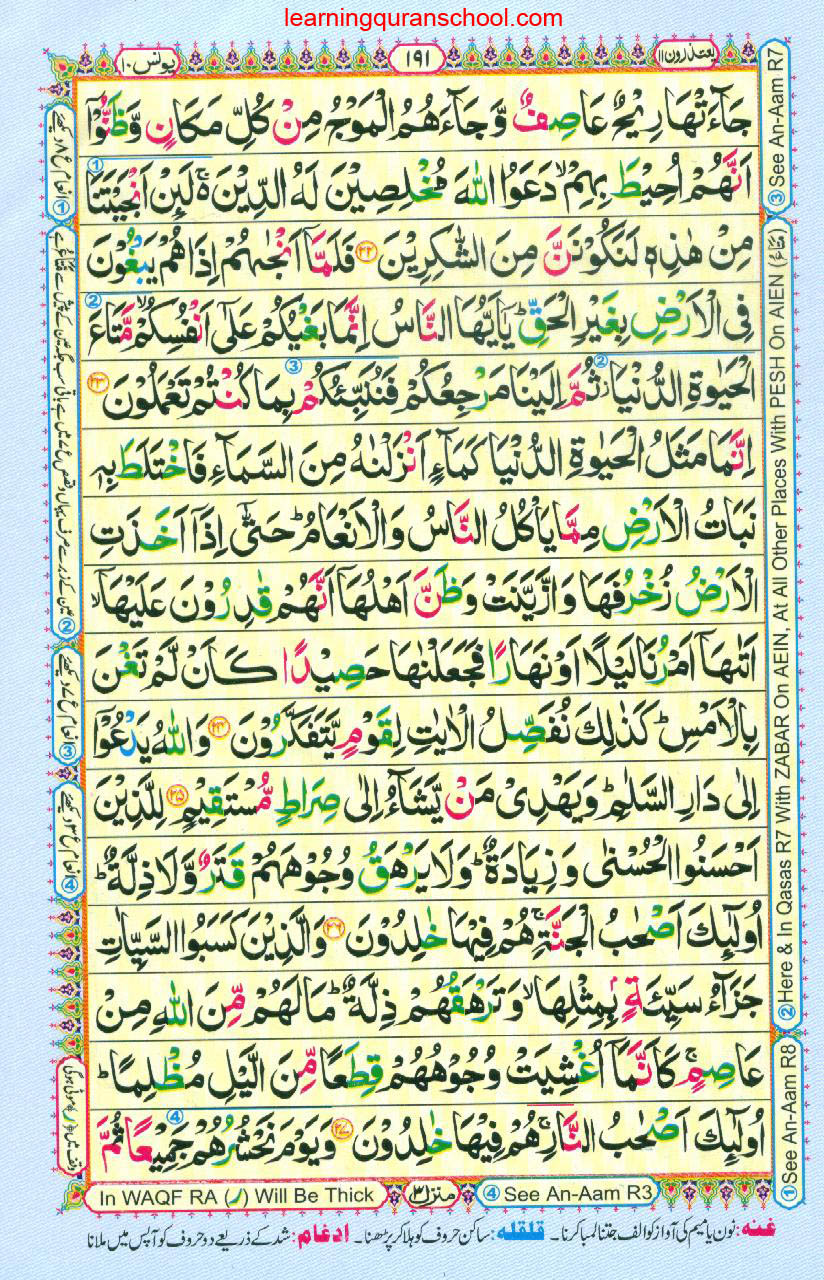 learningquranschool.com
یعتذرون ۱۱
۱۹۱
یونس ۱۰
جَآءَتْهَا رِیْحٌ عَاصِفٌ وَّ جَآءَهُمُ الْمَوْجُ مِنْ كُلِّ مَكَانٍ وَّ ظَنُّوْۤا
اَنَّهُمْ اُحِیْطَ بِهِمْ ۙ دَعَوُا اللّٰهَ مُخْلِصِیْنَ لَهُ الدِّیْنَ ۚ۬ لَىِٕنْ اَنْجَیْتَنَا
مِنْ هٰذِهٖ لَنَكُوْنَنَّ مِنَ الشّٰكِرِیْنَ ۲۲ فَلَمَّاۤ اَنْجٰىهُمْ اِذَا هُمْ یَبْغُوْنَ
فِی الْاَرْضِ بِغَیْرِ الْحَقِّ ؕ یٰۤاَیُّهَا النَّاسُ اِنَّمَا بَغْیُكُمْ عَلٰۤى اَنْفُسِكُمْ ۙ مَّتَاعَ
الْحَیٰوةِ الدُّنْیَا ؗ ثُمَّ اِلَیْنَا مَرْجِعُكُمْ فَنُنَبِّئُكُمْ بِمَا كُنْتُمْ تَعْمَلُوْنَ ۲۳
اِنَّمَا مَثَلُ الْحَیٰوةِ الدُّنْیَا كَمَآءٍ اَنْزَلْنٰهُ مِنَ السَّمَآءِ فَاخْتَلَطَ بِهٖ
نَبَاتُ الْاَرْضِ مِمَّا یَاْكُلُ النَّاسُ وَ الْاَنْعَامُ ؕ حَتّٰۤى اِذَاۤ اَخَذَتِ
الْاَرْضُ زُخْرُفَهَا وَ ازَّیَّنَتْ وَ ظَنَّ اَهْلُهَاۤ اَنَّهُمْ قٰدِرُوْنَ عَلَیْهَاۤ ۙ
اَتٰىهَاۤ اَمْرُنَا لَیْلًا اَوْ نَهَارًا فَجَعَلْنٰهَا حَصِیْدًا كَاَنْ لَّمْ تَغْنَ
بِالْاَمْسِ ؕ كَذٰلِكَ نُفَصِّلُ الْاٰیٰتِ لِقَوْمٍ یَّتَفَكَّرُوْنَ ۲۴ وَ اللّٰهُ یَدْعُوْۤا
اِلٰى دَارِ السَّلٰمِ ؕ وَ یَهْدِیْ مَنْ یَّشَآءُ اِلٰى صِرَاطٍ مُّسْتَقِیْمٍ ۲۵ لِلَّذِیْنَ
اَحْسَنُوا الْحُسْنٰى وَ زِیَادَةٌ ؕ وَ لَا یَرْهَقُ وُجُوْهَهُمْ قَتَرٌ وَّ لَا ذِلَّةٌ ؕ
اُولٰٓىِٕكَ اَصْحٰبُ الْجَنَّةِ ۚ هُمْ فِیْهَا خٰلِدُوْنَ ۲۶ وَ الَّذِیْنَ كَسَبُوا السَّیِّاٰتِ
جَزَآءُ سَیِّئَةٍۭ بِمِثْلِهَا ۙ وَ تَرْهَقُهُمْ ذِلَّةٌ ؕ مَا لَهُمْ مِّنَ اللّٰهِ مِنْ
عَاصِمٍ ۚ كَاَنَّمَاۤ اُغْشِیَتْ وُجُوْهُهُمْ قِطَعًا مِّنَ الَّیْلِ مُظْلِمًا ؕ
اُولٰٓىِٕكَ اَصْحٰبُ النَّارِ ۚ هُمْ فِیْهَا خٰلِدُوْنَ ۲۷ وَ یَوْمَ نَحْشُرُهُمْ جَمِیْعًا ثُمَّ
③ See An-Aam R7
② Here & In Qasas R7 With ZABAR On AEIN, At All Other Places With PESH On AIEN (مَتَاعُ)
① See An-Aam R8
① انعام ع ۸ دیکھئے
③ انعام ع ۷ دیکھئے
④ انعام ع ۳ دیکھئے
In WAQF RA (ر) Will Be Thick
منزل ۳
④ See An-Aam R3
غنه: نون یا میم کی آواز کو الف جتنا لمبا کرنا۔ قلقله: ساکن حروف کو ہلا کر پڑھنا۔ ادغام: شد کے ذریعے دو حروف کو آپس میں ملانا